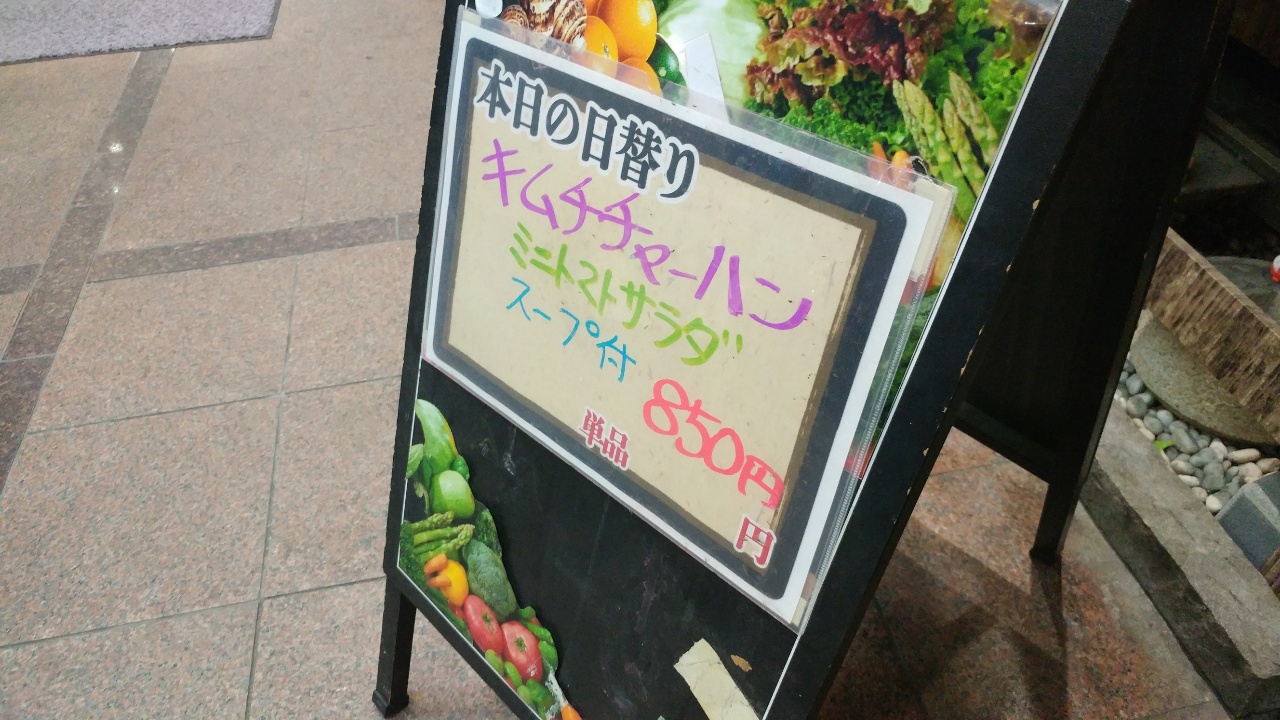 本日の日替り
キムチチャーハン
ミニトマトサラダ
スープ付
850円
単品
円